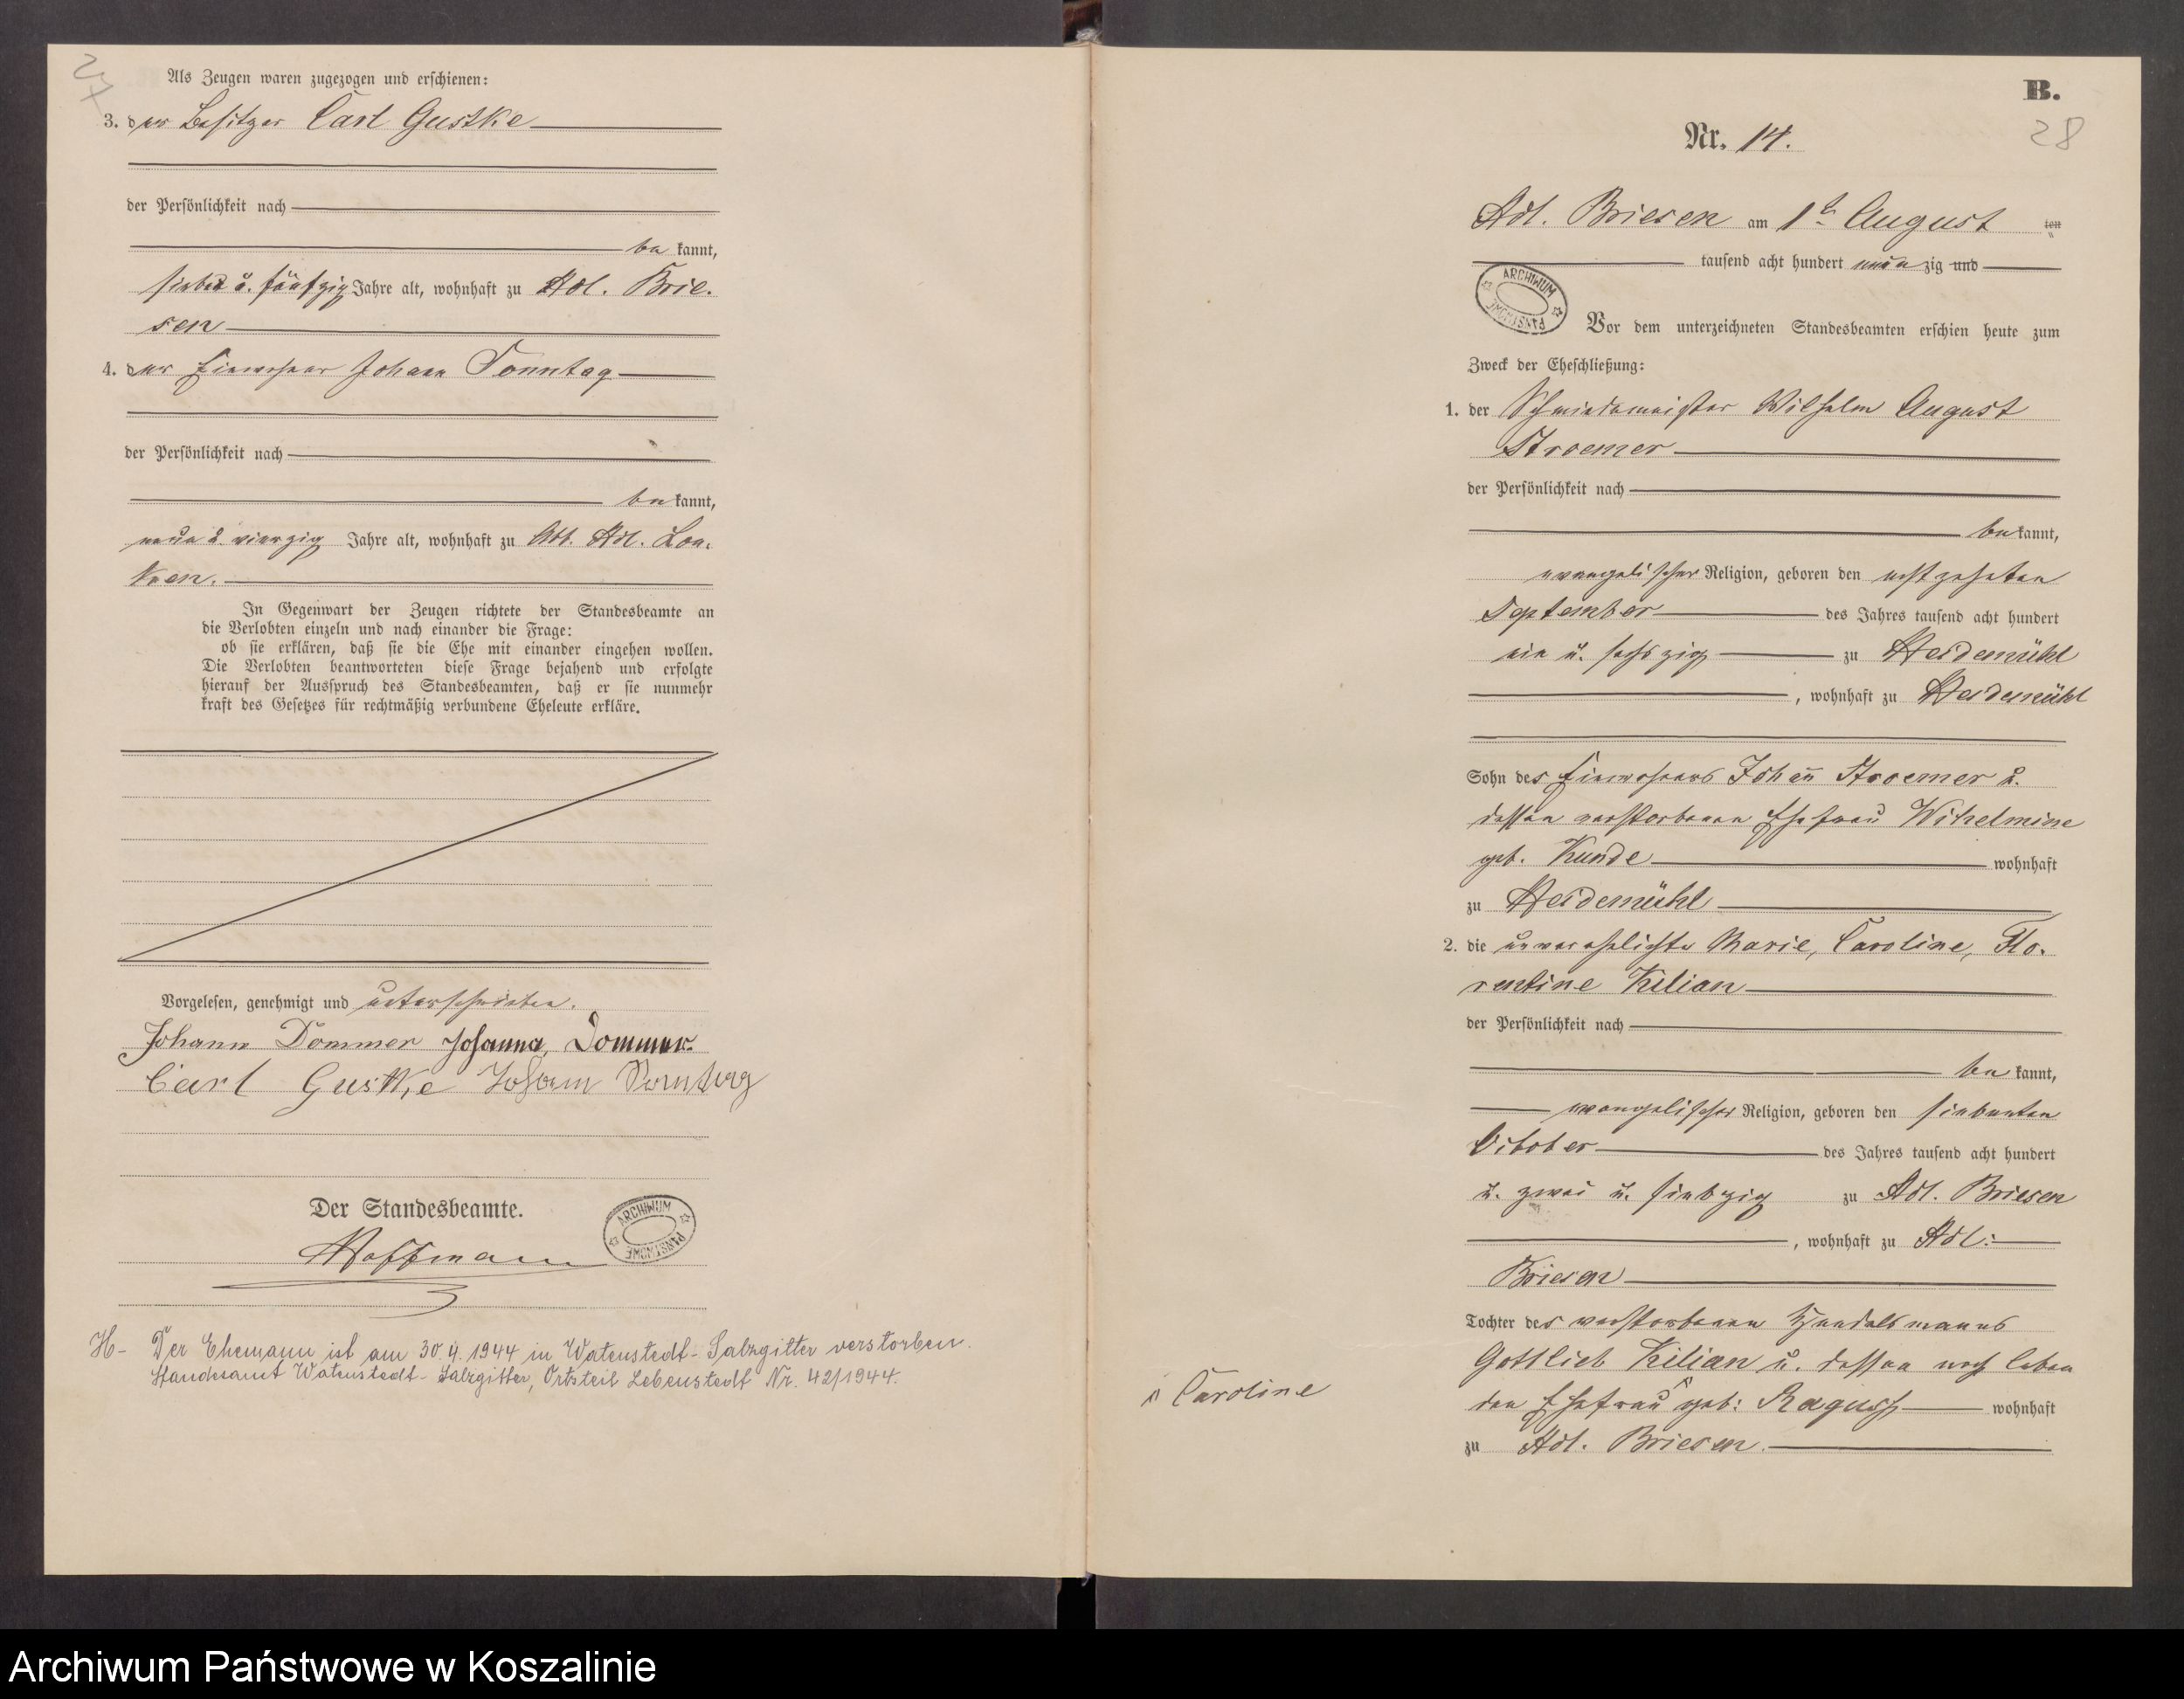 27
Als Zeugen waren zugezogen und erschienen:
3. der Besitzer Carl Gustke
der Persönlichkeit nach
be kannt,
sieben u. fünfzig Jahre alt, wohnhaft zu Adl. Brie-
sen
4. der Einwohner Johann Sonntag
der Persönlichkeit nach
be kannt,
neun u. vierzig Jahre alt, wohnhaft zu Adl. Lon-
ken.
In Gegenwart der Zeugen richtete der Standesbeamte an
die Verlobten einzeln und nach einander die Frage:
ob sie erklären, daß sie die Ehe mit einander eingehen wollen.
Die Verlobten beantworteten diese Frage bejahend und erfolgte
hierauf der Ausspruch des Standesbeamten, daß er sie nunmehr
kraft des Gesetzes für rechtmäßig verbundene Eheleute erkläre.
Vorgelesen, genehmigt und unterschrieben.
Johann Dommer Johanna Dommer
Carl Gustke Johann Sonntag
Der Standesbeamte.
Hoffmann
ARCHIWUM PAŃSTWOWE
H- Der Ehemann ist am 30.4.1944 in Watenstedt-Salzgitter verstorben.
Standesamt Watenstedt-Salzgitter, Ortsteil Lebenstedt Nr. 42/1944.
B.
28
Nr. 14.
Adl. Briesen am 1t August ten
tausend acht hundert neunzig und
ARCHIWUM PAŃSTWOWE
Vor dem unterzeichneten Standesbeamten erschien heute zum
Zweck der Eheschließung:
1. der Schmiedemeister Wilhelm August
Stroemer
der Persönlichkeit nach
be kannt,
evangelischer Religion, geboren den achtzehnten
September des Jahres tausend acht hundert
ein u. sechszig zu Heidemühl
, wohnhaft zu Heidemühl
Sohn des Einwohners Johann Stroemer u.
dessen verstorbenen Ehefrau Wihelmine
geb. Kunde wohnhaft
zu Heidemühl
2. die unverehelichte Marie, Caroline, Flo-
rentine Kilian
der Persönlichkeit nach
be kannt,
evangelischer Religion, geboren den siebenten
October des Jahres tausend acht hundert
u. zwei u. siebzig zu Adl. Briesen
, wohnhaft zu Adl:
Briesen
Tochter des verstorbenen Handelsmanns
Gottlieb Kilian u. dessen noch leben
den Ehefrau geb: Ragusch wohnhaft
Caroline
zu Adl. Briesen.
Archiwum Państwowe w Koszalinie